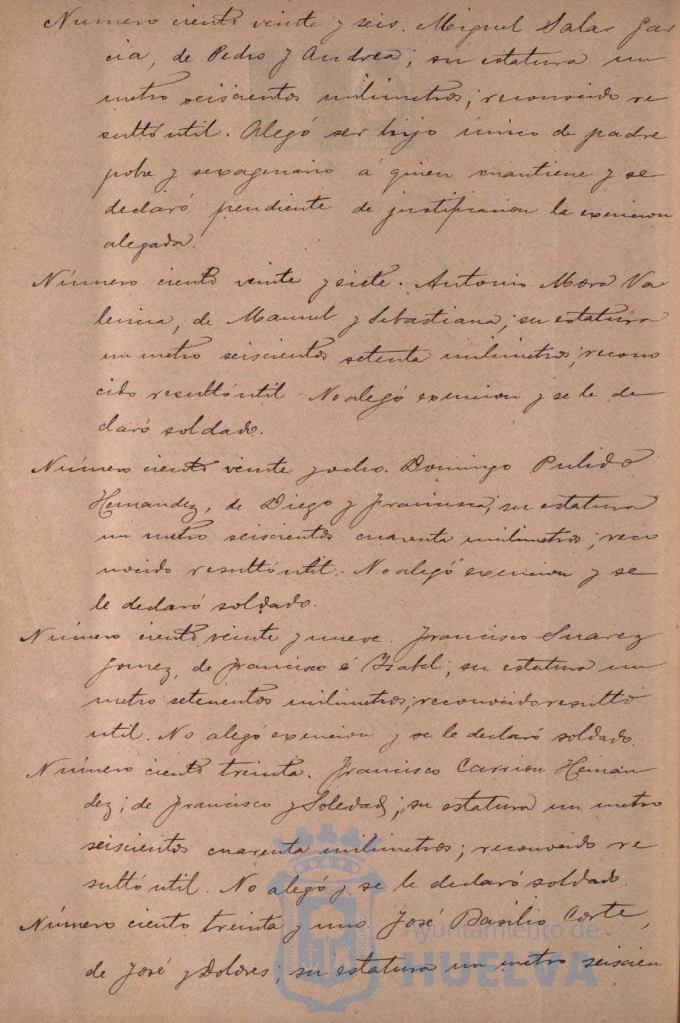 Número ciento veinte y seis. Miguel Salas Gar
cia, de Pedro y Andrea; su estatura un
metro seiscientos milimetros; reconocido re
sultó util. Alegó ser hijo único de padre
pobre y sexagenario á quien mantiene y se
declaró pendiente de justificacion la exencion
alegada.
Número ciento veinte y siete. Antonio Mora Va
lencia, de Manuel y Sebastiana; su estatura
un metro seiscientos setenta milimetros; recono
cido resultó util. No alegó exencion y se le de
claró soldado.
Número ciento veinte y ocho. Domingo Pulido
Hernandez, de Diego y Francisca; su estatura
un metro seiscientos cuarenta milimetros; reco
nocido resultó util. No alegó exencion y se
le declaró soldado.
Número ciento veinte y nueve. Francisco Suarez
Gomez, de Francisco é Isabel; su estatura un
metro setecientos milimetros; reconocido resultó
util. No alegó exencion y se le declaró soldado.
Número ciento treinta. Francisco Carrion Hernan
dez; de Francisco y Soledad; su estatura un metro
seiscientos cuarenta milimetros; reconocido re
sultó util. No alegó y se le declaró soldado.
Número ciento treinta y uno. José Basilio Corte,
de José y Dolores; su estatura un metro seiscien
Ayuntamiento de
HUELVA